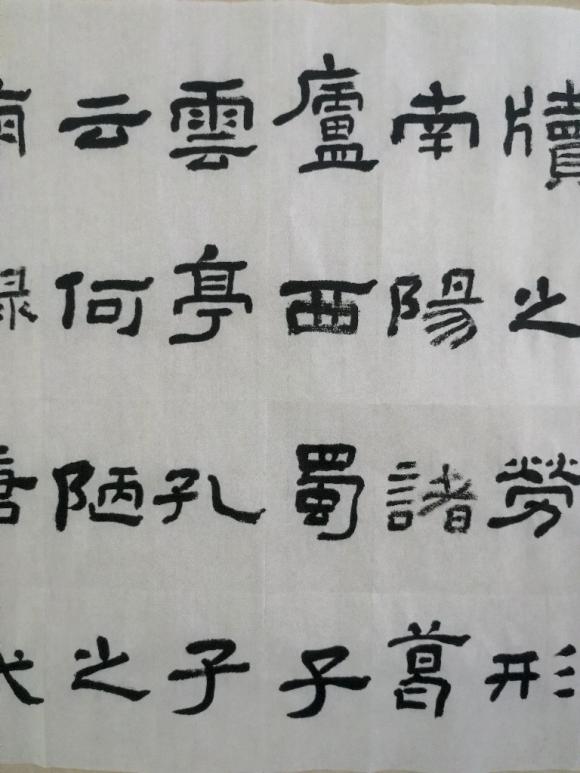 牘之勞形
南陽諸葛
廬西蜀子
雲亭孔子
云何陋之